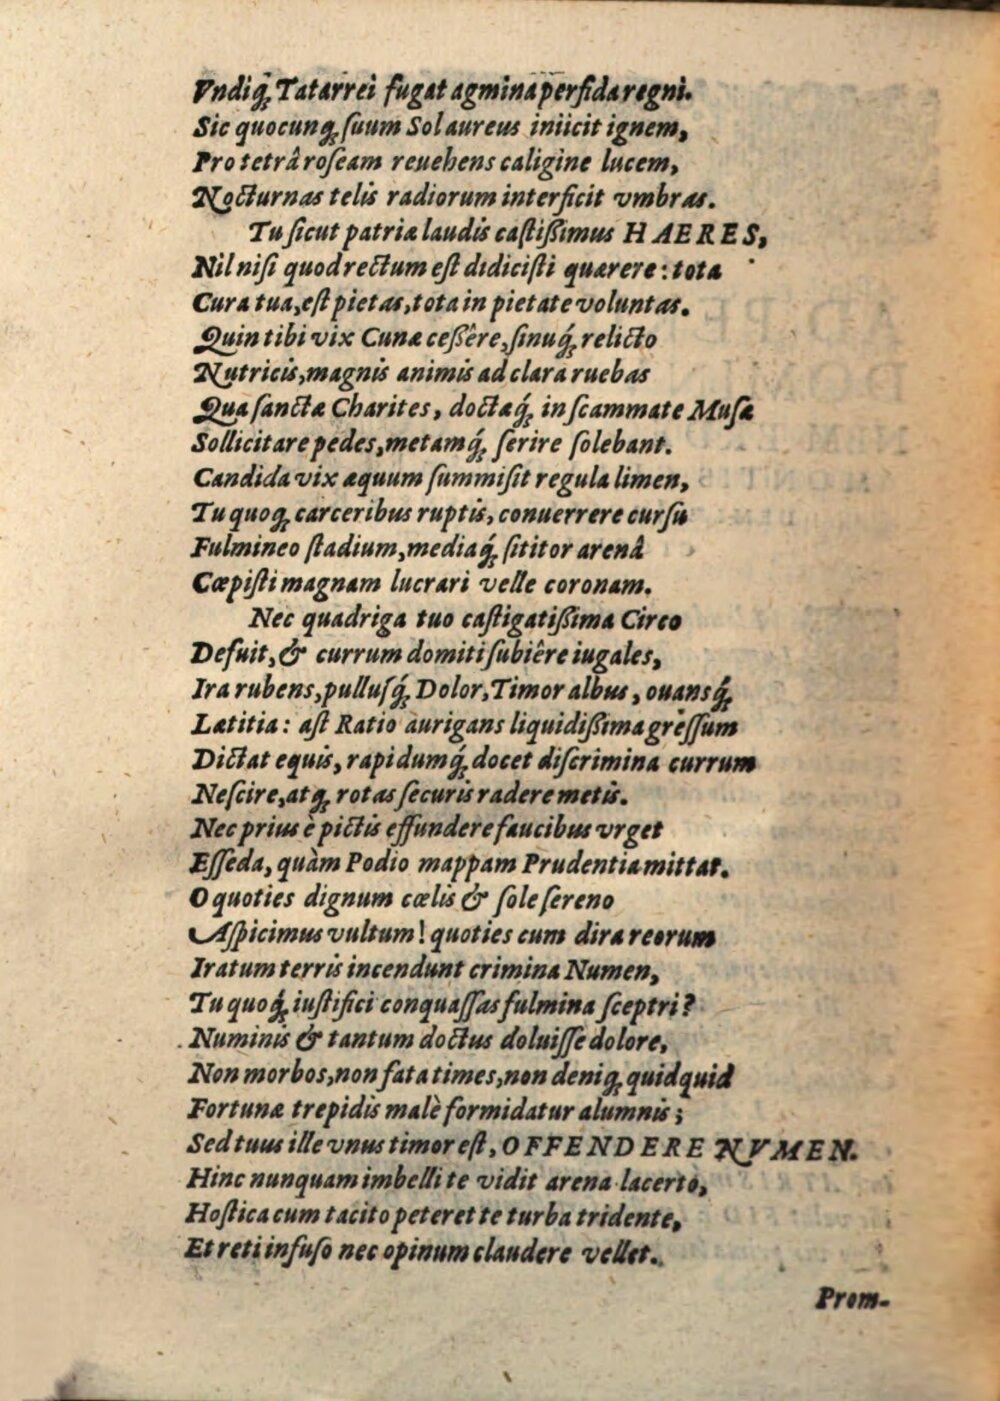 Vndiq́; Tatarrei fugat agmina perfida regni.
Sic quocunq; ſuum Sol aureus iniicit ignem,
Pro tetrâ roſeam reuehens caligine lucem,
Nocturnas telis radiorum interficit vmbras.
Tu ſicut patriæ laudis caſtißimus HAERES,
Nil niſi quod rectum eſt didiciſti quærere: tota
Cura tua, eſt pietas, tota in pietate voluntas.
Quin tibi vix Cunæ ceßêre, ſinuq́; relicto
Nutricis, magnis animis ad clara ruebas
Qua ſanctæ Charites, doctæq́; in ſcammate Muſæ
Sollicitare pedes, metamq́; ferire ſolebant.
Candida vix æquum ſummiſit regula limen,
Tu quoq; carceribus ruptis, conuerrere curſu
Fulmineo ſtadium, mediaq́; ſititor arenâ
Cœpiſti magnam lucrari velle coronam.
Nec quadriga tuo caſtigatißima Circo
Defuit, & currum domiti ſubiêre iugales,
Ira rubens, pulluſq́; Dolor, Timor albus, ouansq́;
Lætitia: aſt Ratio aurigans liquidißima greſſum
Dictat equis, rapidumq́; docet diſcrimina currum
Neſcire, atq; rotas ſecuris radere metis.
Nec prius è pictis effundere faucibus vrget
Eſſeda, quàm Podio mappam Prudentia mittat.
O quoties dignum cœlis & ſole ſereno
Aſpicimus vultum! quoties cum dira reorum
Iratum terris incendunt crimina Numen,
Tu quoq́; iuſtifici conquaſſas fulmina ſceptri?
Numinis & tantum doctus doluiſſe dolore,
Non morbos, non fata times, non deniq; quidquid
Fortunæ trepidis malè formidatur alumnis;
Sed tuus ille vnus timor eſt, OFFENDERE NVMEN.
Hinc nunquam imbelli te vidit arena lacerto,
Hoſtica cum tacito peteret te turba tridente,
Et reti infuſo nec opinum claudere vellet.
Prom-